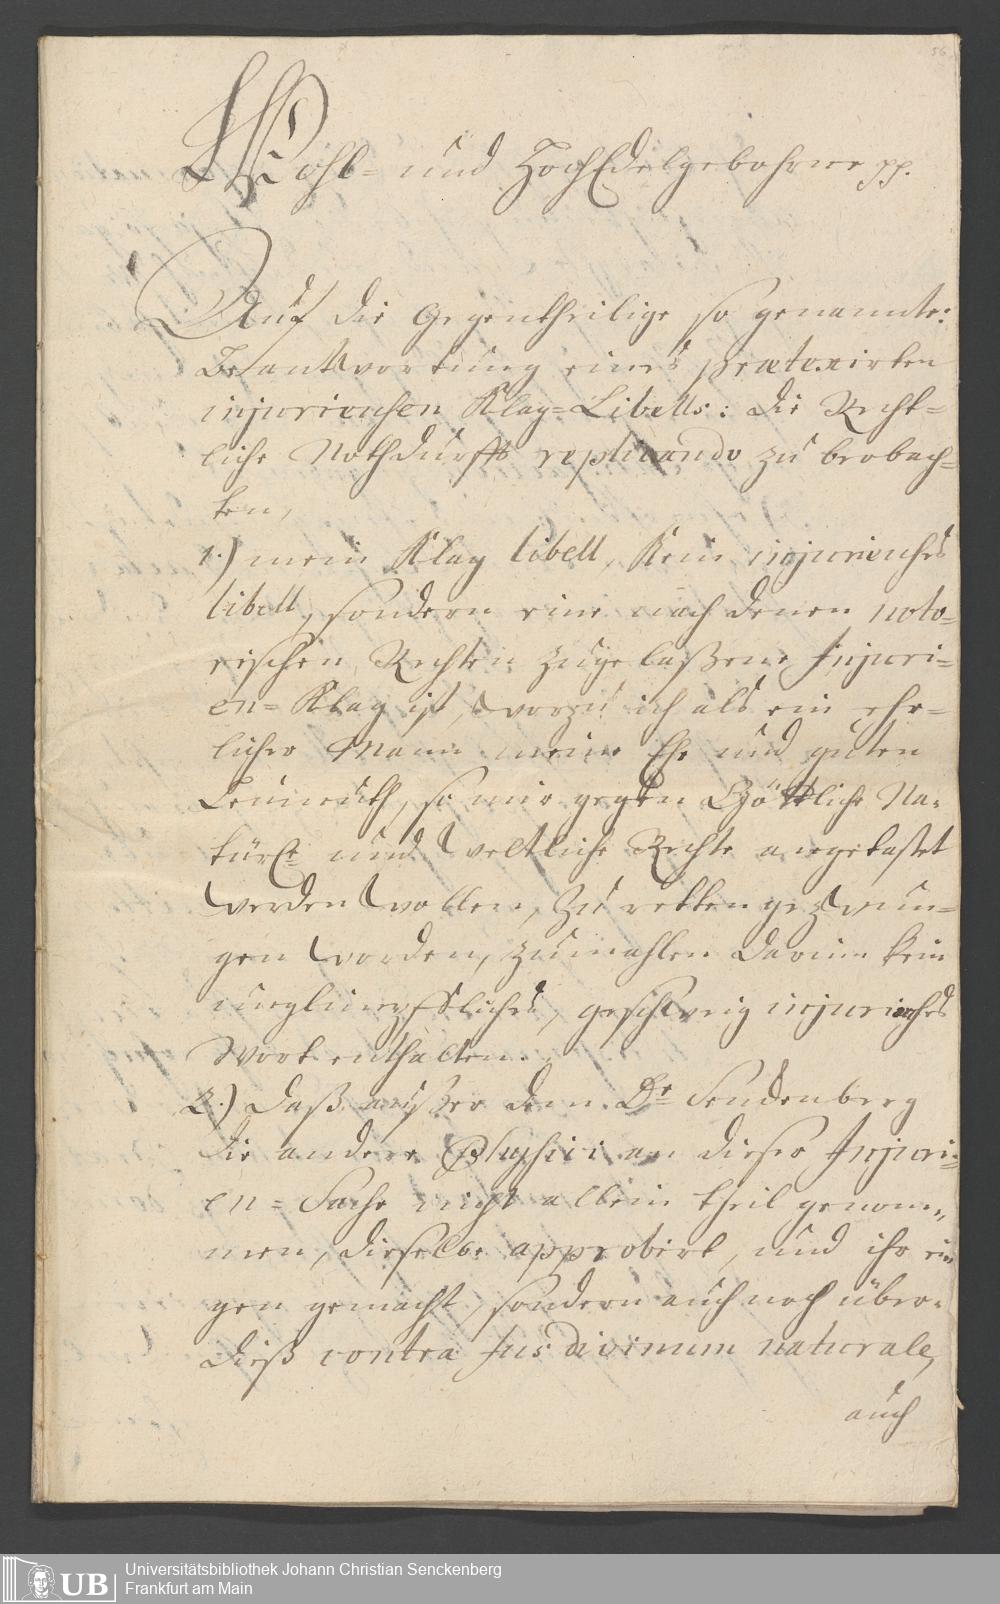 56
Wohl- und HochEdelgebohrne pp.
Auf die Gegentheilige so genannte:
Beantwortung eines prætexirten
injurieusen Klag-Libells: die Recht-
liche Nothdurfft replicando zu beobach-
ten,
1.) mein Klag libell, kein injurieuses
libell, sondern eine nach denen noto-
rischen Rechten zugelaßene Injuri-
en-Klag ist, worzu ich als ein ehr-
licher Mann meine Ehr und guten
Leumuth, so mir gegen Göttliche Na-
türl. und weltliche Rechte angetastet
werden wollen, zu retten gezwun-
gen worden, zumahlen darinn kein
unglimpffliches, geschweig injurieuses
Wort enthalten.
2.) Daß ausser dem Dr. Senckenberg
die andere Physici an dieser Injuri-
en-Sache nicht allein theil genom-
men, dieselbe approbirt, und ihr ei-
gen gemacht, sondern auch noch über-
dieß contra Jus divinum naturale,
auch
UB
Universitätsbibliothek Johann Christian Senckenberg
Frankfurt am Main